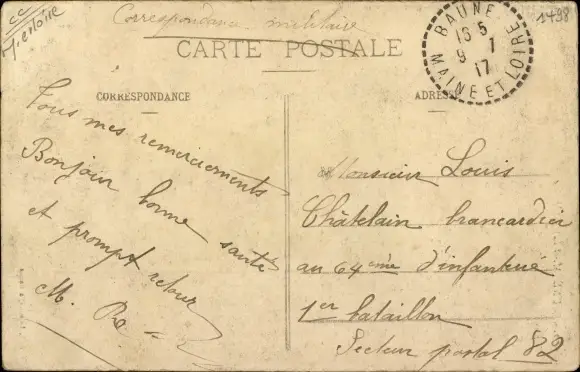 cc
Correspondance militaire
1498
CARTE POSTALE
BAUNE
16 5
9 - 7
17
MAINE ET LOIRE
CORRESPONDANCE
ADRESSE
Tous mes remerciements
Bonjour bonne santé
et prompt retour
M. Re
Monsieur Louis
Châtelain brancardier
au 64eme d'infanterie
1er bataillon
Secteur postal 82